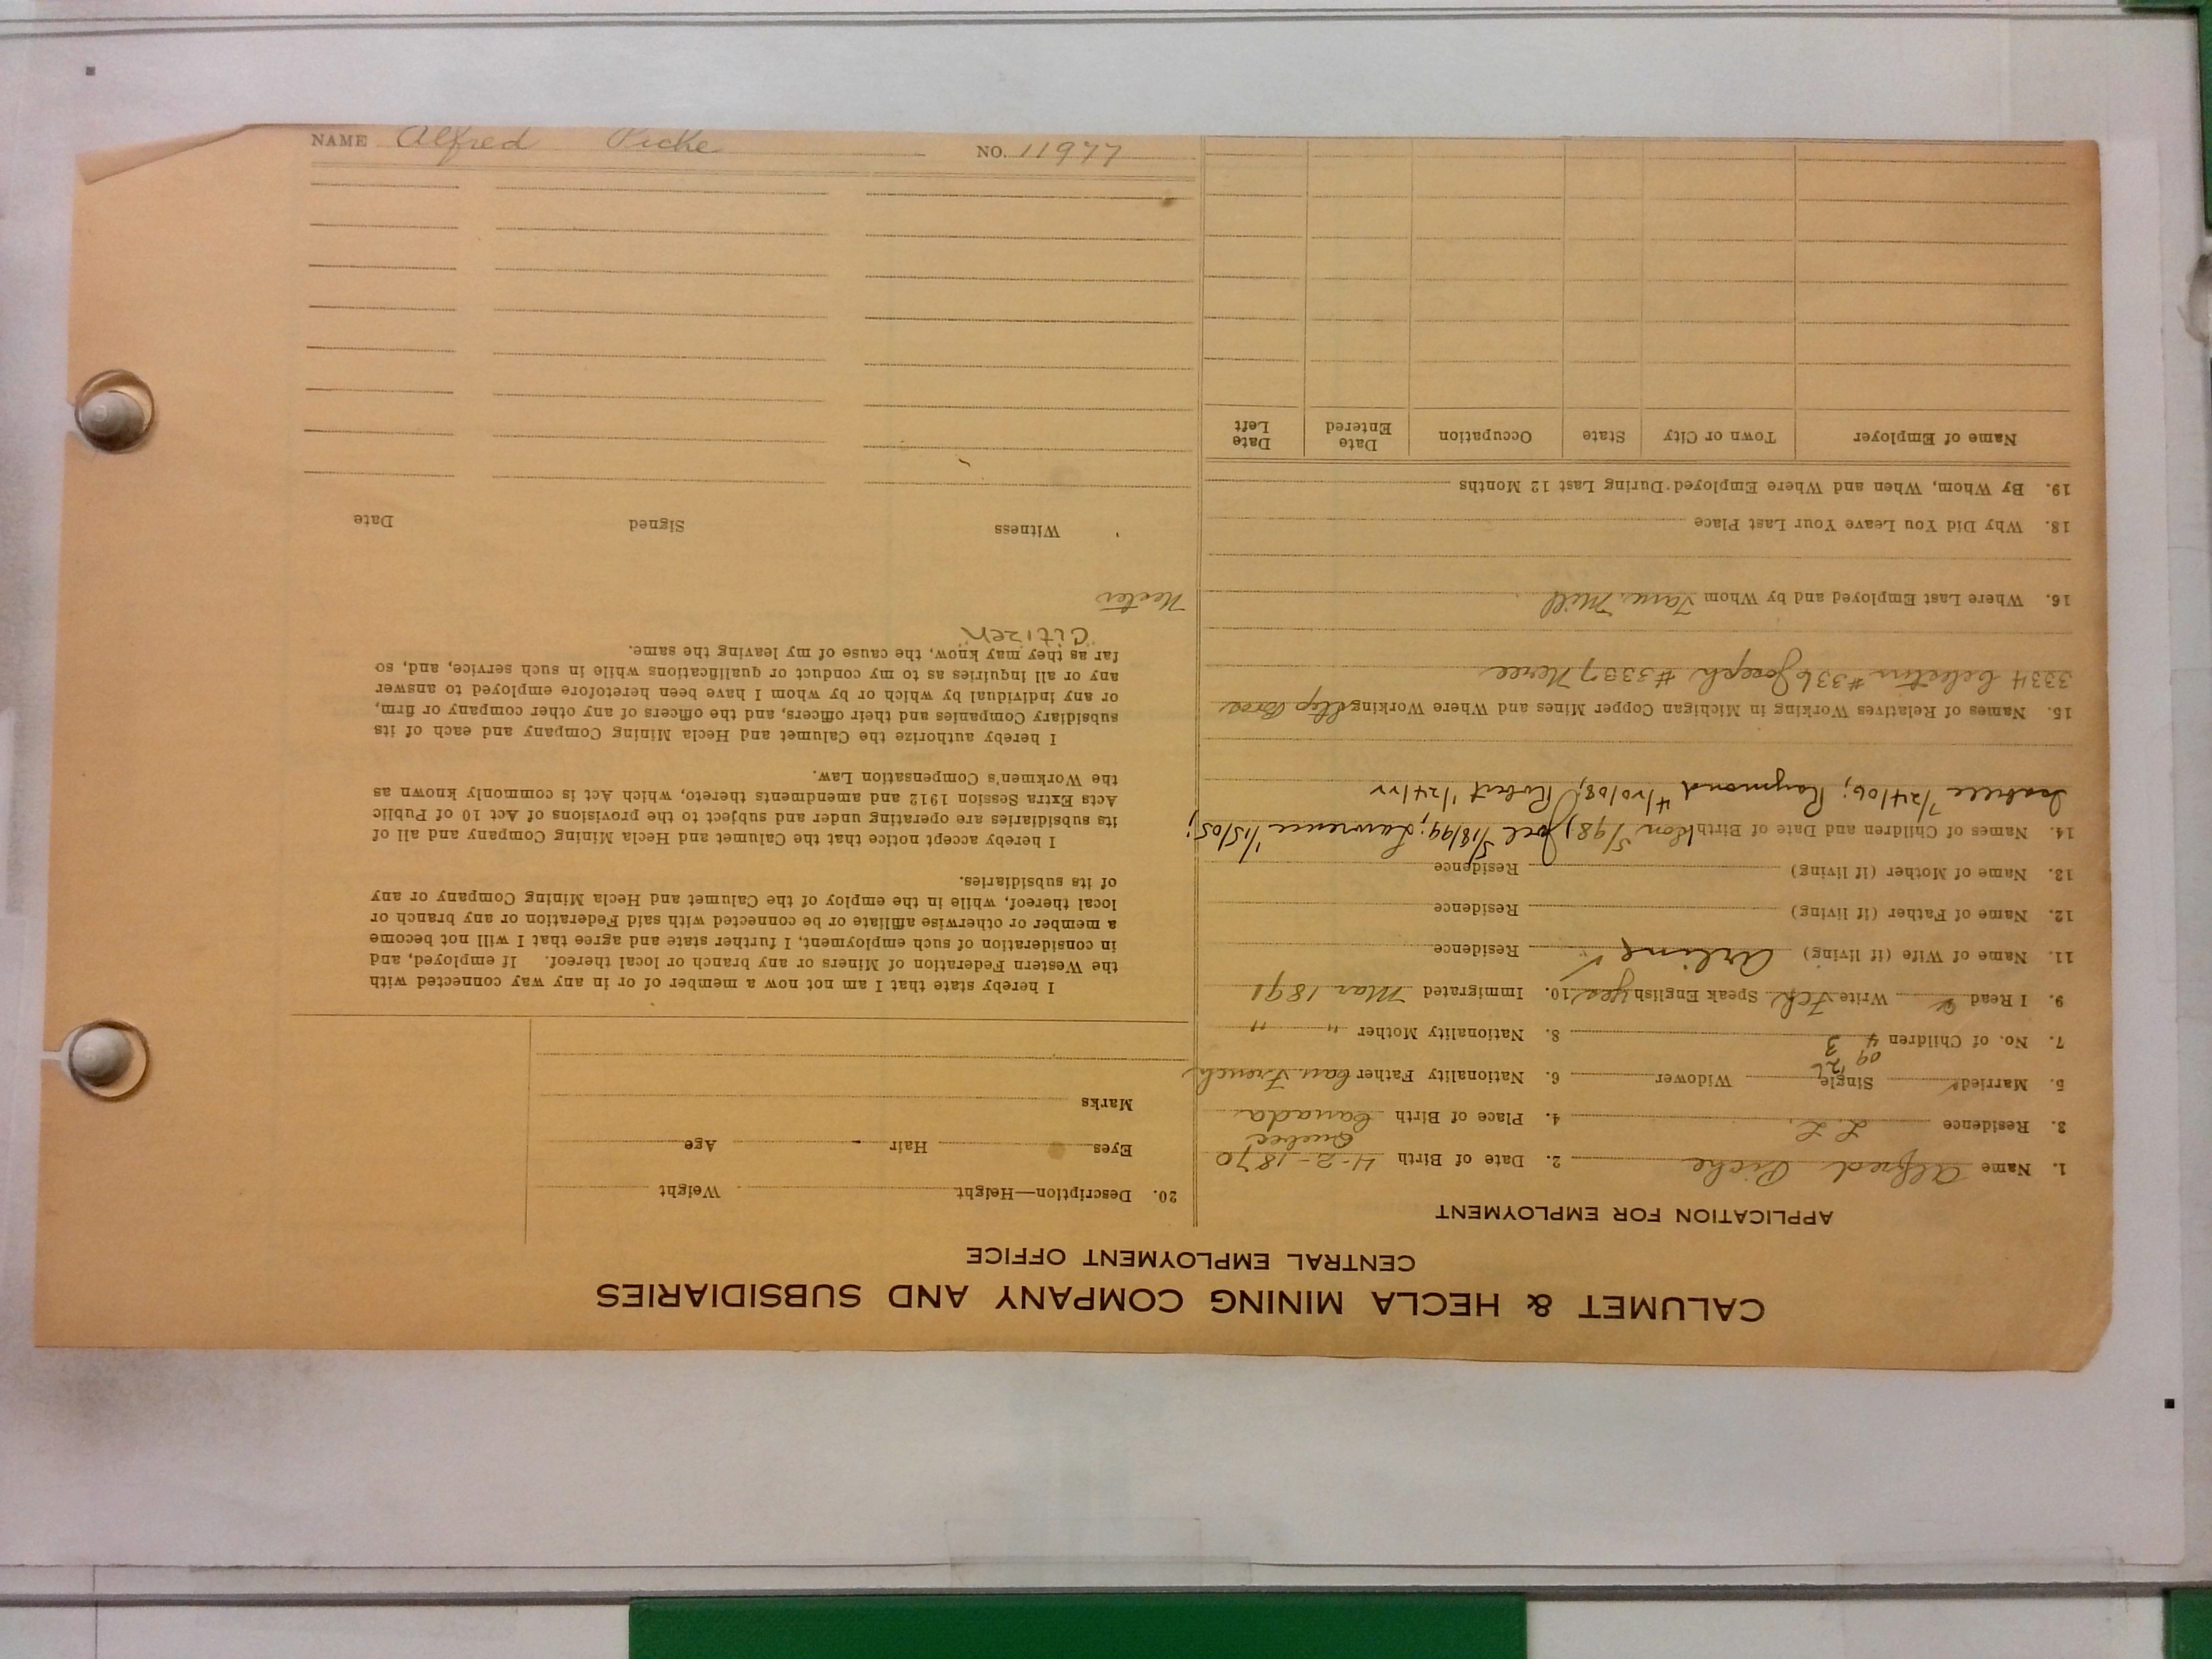 CALUMET & HECLA MINING COMPANY AND SUBSIDIARIES
CENTRAL EMPLOYMENT OFFICE
APPLICATION FOR EMPLOYMENT
1. Name Alfred Piche 2. Date of Birth 4-2-1870
Quebec
3. Residence L.L. 4. Place of Birth Canada
5. Married Single Widower 6. Nationality Father Can French
7. No. of Children 4 3 8. Nationality Mother " "
9. I Read Write Fch Speak English yes 10. Immigrated Mar 1891
11. Name of Wife (if living) Arline Residence
12. Name of Father (if living) Residence
13. Name of Mother (if living) Residence
14. Names of Children and Date of Birth 5/98; Joel 5/18/99; Lawrence 1/15/05;
Isabelle 7/24/06; Raymond 4/20/08; Robert 1/24/22
15. Names of Relatives Working in Michigan Copper Mines and Where Working
3334 Celestin #336 Joseph #3337
16. Where Last Employed and by Whom Tam. Mill
18. Why Did You Leave Your Last Place
19. By Whom, When and Where Employed During Last 12 Months
Name of Employer Town or City State Occupation Date Entered Date Left
20. Description—Height Weight
Eyes Hair Age
Marks
I hereby state that I am not now a member of or in any way connected with
the Western Federation of Miners or any branch or local thereof. If employed, and
in consideration of such employment, I further state and agree that I will not become
a member or otherwise affiliate or be connected with said Federation or any branch or
local thereof, while in the employ of the Calumet and Hecla Mining Company or any
of its subsidiaries.
I hereby accept notice that the Calumet and Hecla Mining Company and all of
its subsidiaries are operating under and subject to the provisions of Act 10 of Public
Acts Extra Session 1912 and amendments thereto, which Act is commonly known as
the Workmen's Compensation Law.
I hereby authorize the Calumet and Hecla Mining Company and each of its
subsidiary Companies and their officers, and the officers of any other company or firm,
or any individual by which or by whom I have been heretofore employed to answer
any or all inquiries as to my conduct or qualifications while in such service, and, so
far as they may know, the cause of my leaving the same.
Citizen
Witness Signed Date
NAME Alfred Piche NO. 11977